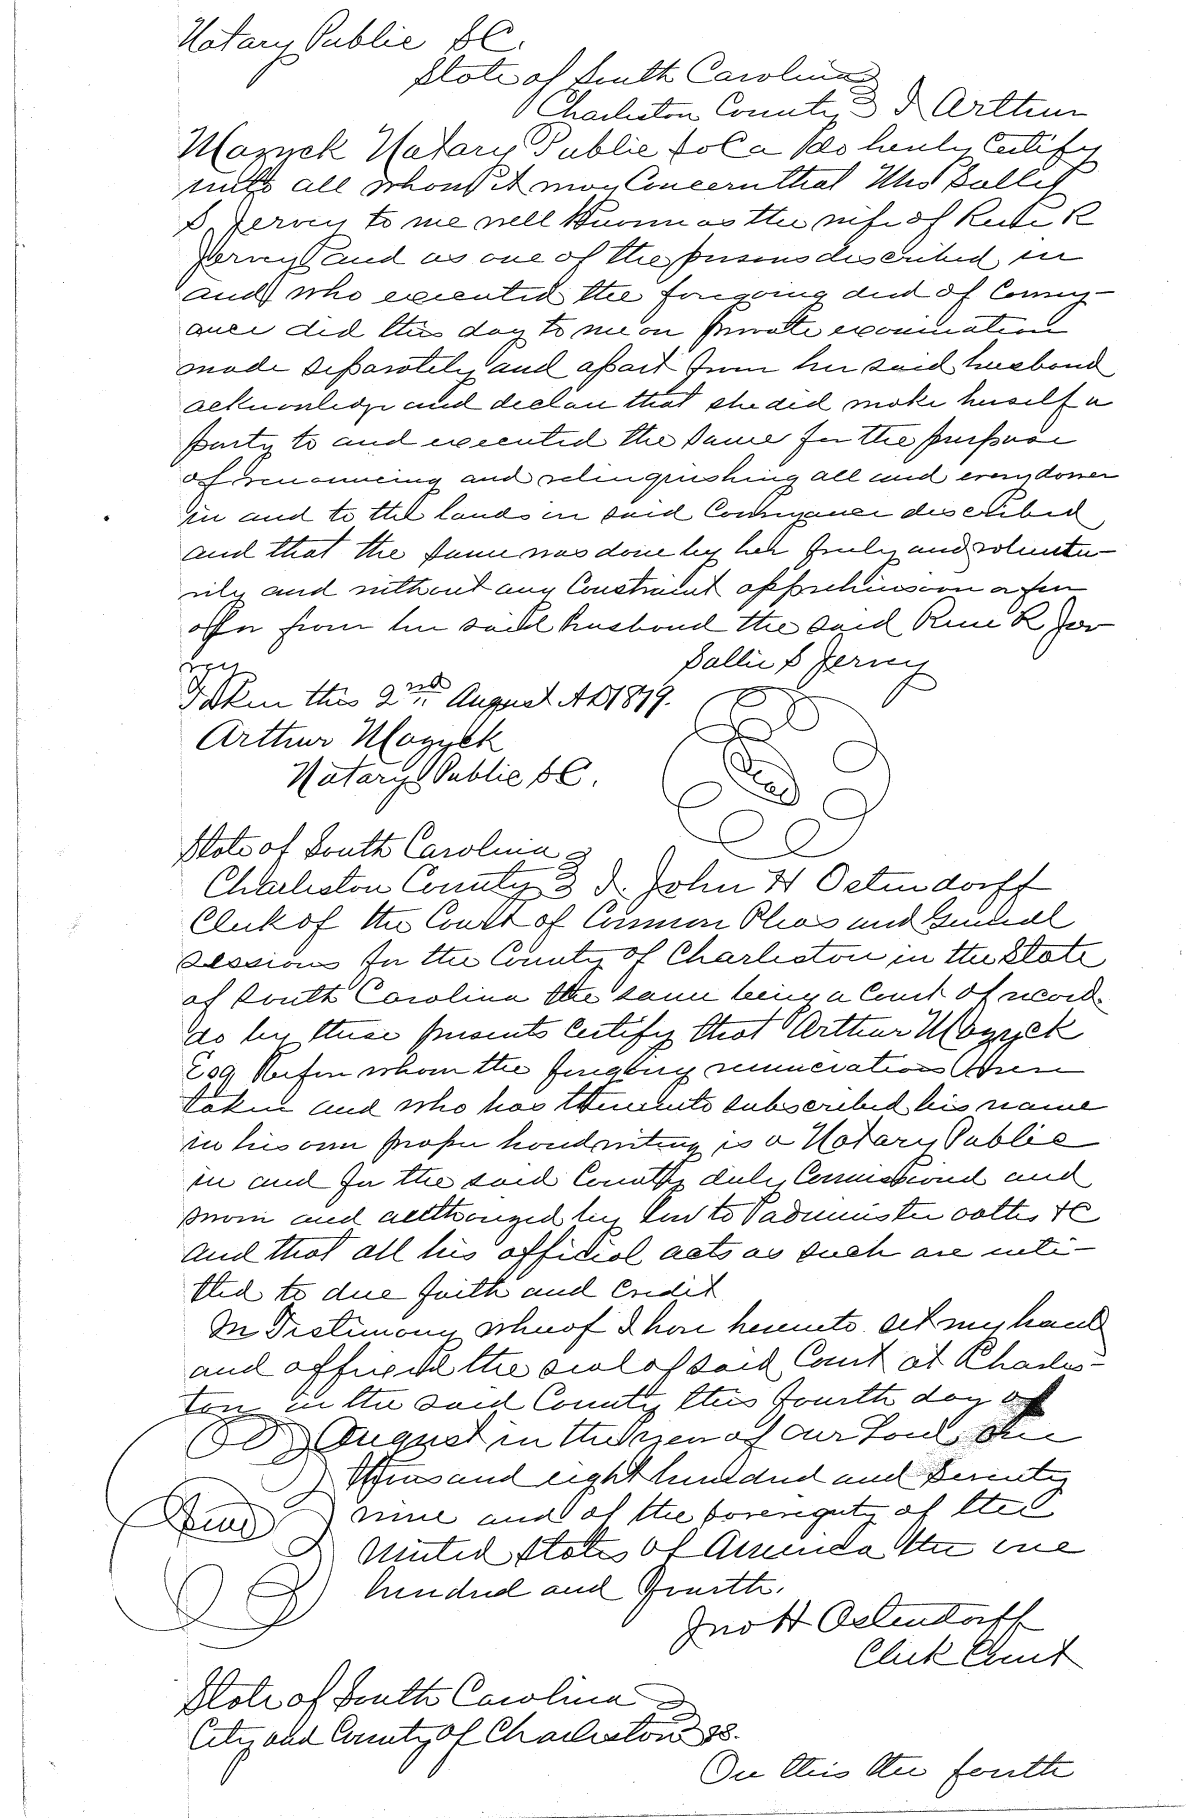 Notary Public SC.
State of South Carolina
Charleston County } I Arthur
Mazyck Notary Public So Ca do hereby Certify
unto all whom it may Concern that Mrs Sallie
S Jervey to me well Known as the wife of Rene R
Jervey and as one of the persons described in
and who executed the foregoing deed of Convey-
ance did this day to me on private examination
made separately and apart from her said husband
acknowledge and declare that she did make herself a
party to and executed the same for the purpose
of renouncing and relinquishing all and every dower
in and to the lands in said Conveyance described
and that the same was done by her freely and volunta-
rily and without any Constraint apprehension or fear
of or from her said husband the said Rene R Jer
vey
Sallie S Jervey
Taken this 2nd August AD1879.
Arthur Mazyck
Notary Public SC.
Seal
State of South Carolina }
Charleston County } I. John H Ostendorff
Clerk of the Court of Common Pleas and General
Sessions for the County of Charleston in the State
of South Carolina the same being a Court of record.
do by these presents Certify that Arthur Mazyck
Esq Before whom the foregoing renunciations were
taken and who has thereunto subscribed his name
in his own proper handwriting is a Notary Public
in and for the said County duly Commissioned and
sworn and authorized by law to administer oaths &C
and that all his official acts as such are inti-
tled to due faith and Credit
In Testimony whereof I have hereunto set my hand
and affixed the seal of said Court at Charles-
ton in the said County this fourth day of
August in the year of our Lord One
thousand eight hundred and Seventy
nine and of the Sovereignty of the
Seal
United States of America the one
hundred and fourth.
Jno H Ostendorff
Clerk Court
State of South Carolina }
City and County of Charleston } SS.
On this the fourth